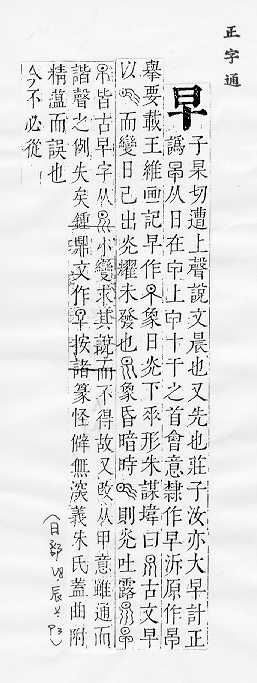 正字通
早 子杲切遭上聲說文晨也又先也莊子汝亦大早計正
譌从日在上十干之首會意隸作早泝原作
舉要載王維画記早作象日炗下垂形朱謀㙔曰古文早
以而變日已出炗耀未發也象昏暗時則炗吐露
皆古早字从小變求其說而不得故又改从甲意雖通而
諧聲之例失矣鍾鼎文作按諸篆怪僻無深義朱氏蓋曲附
精蘊而誤也
今不必從